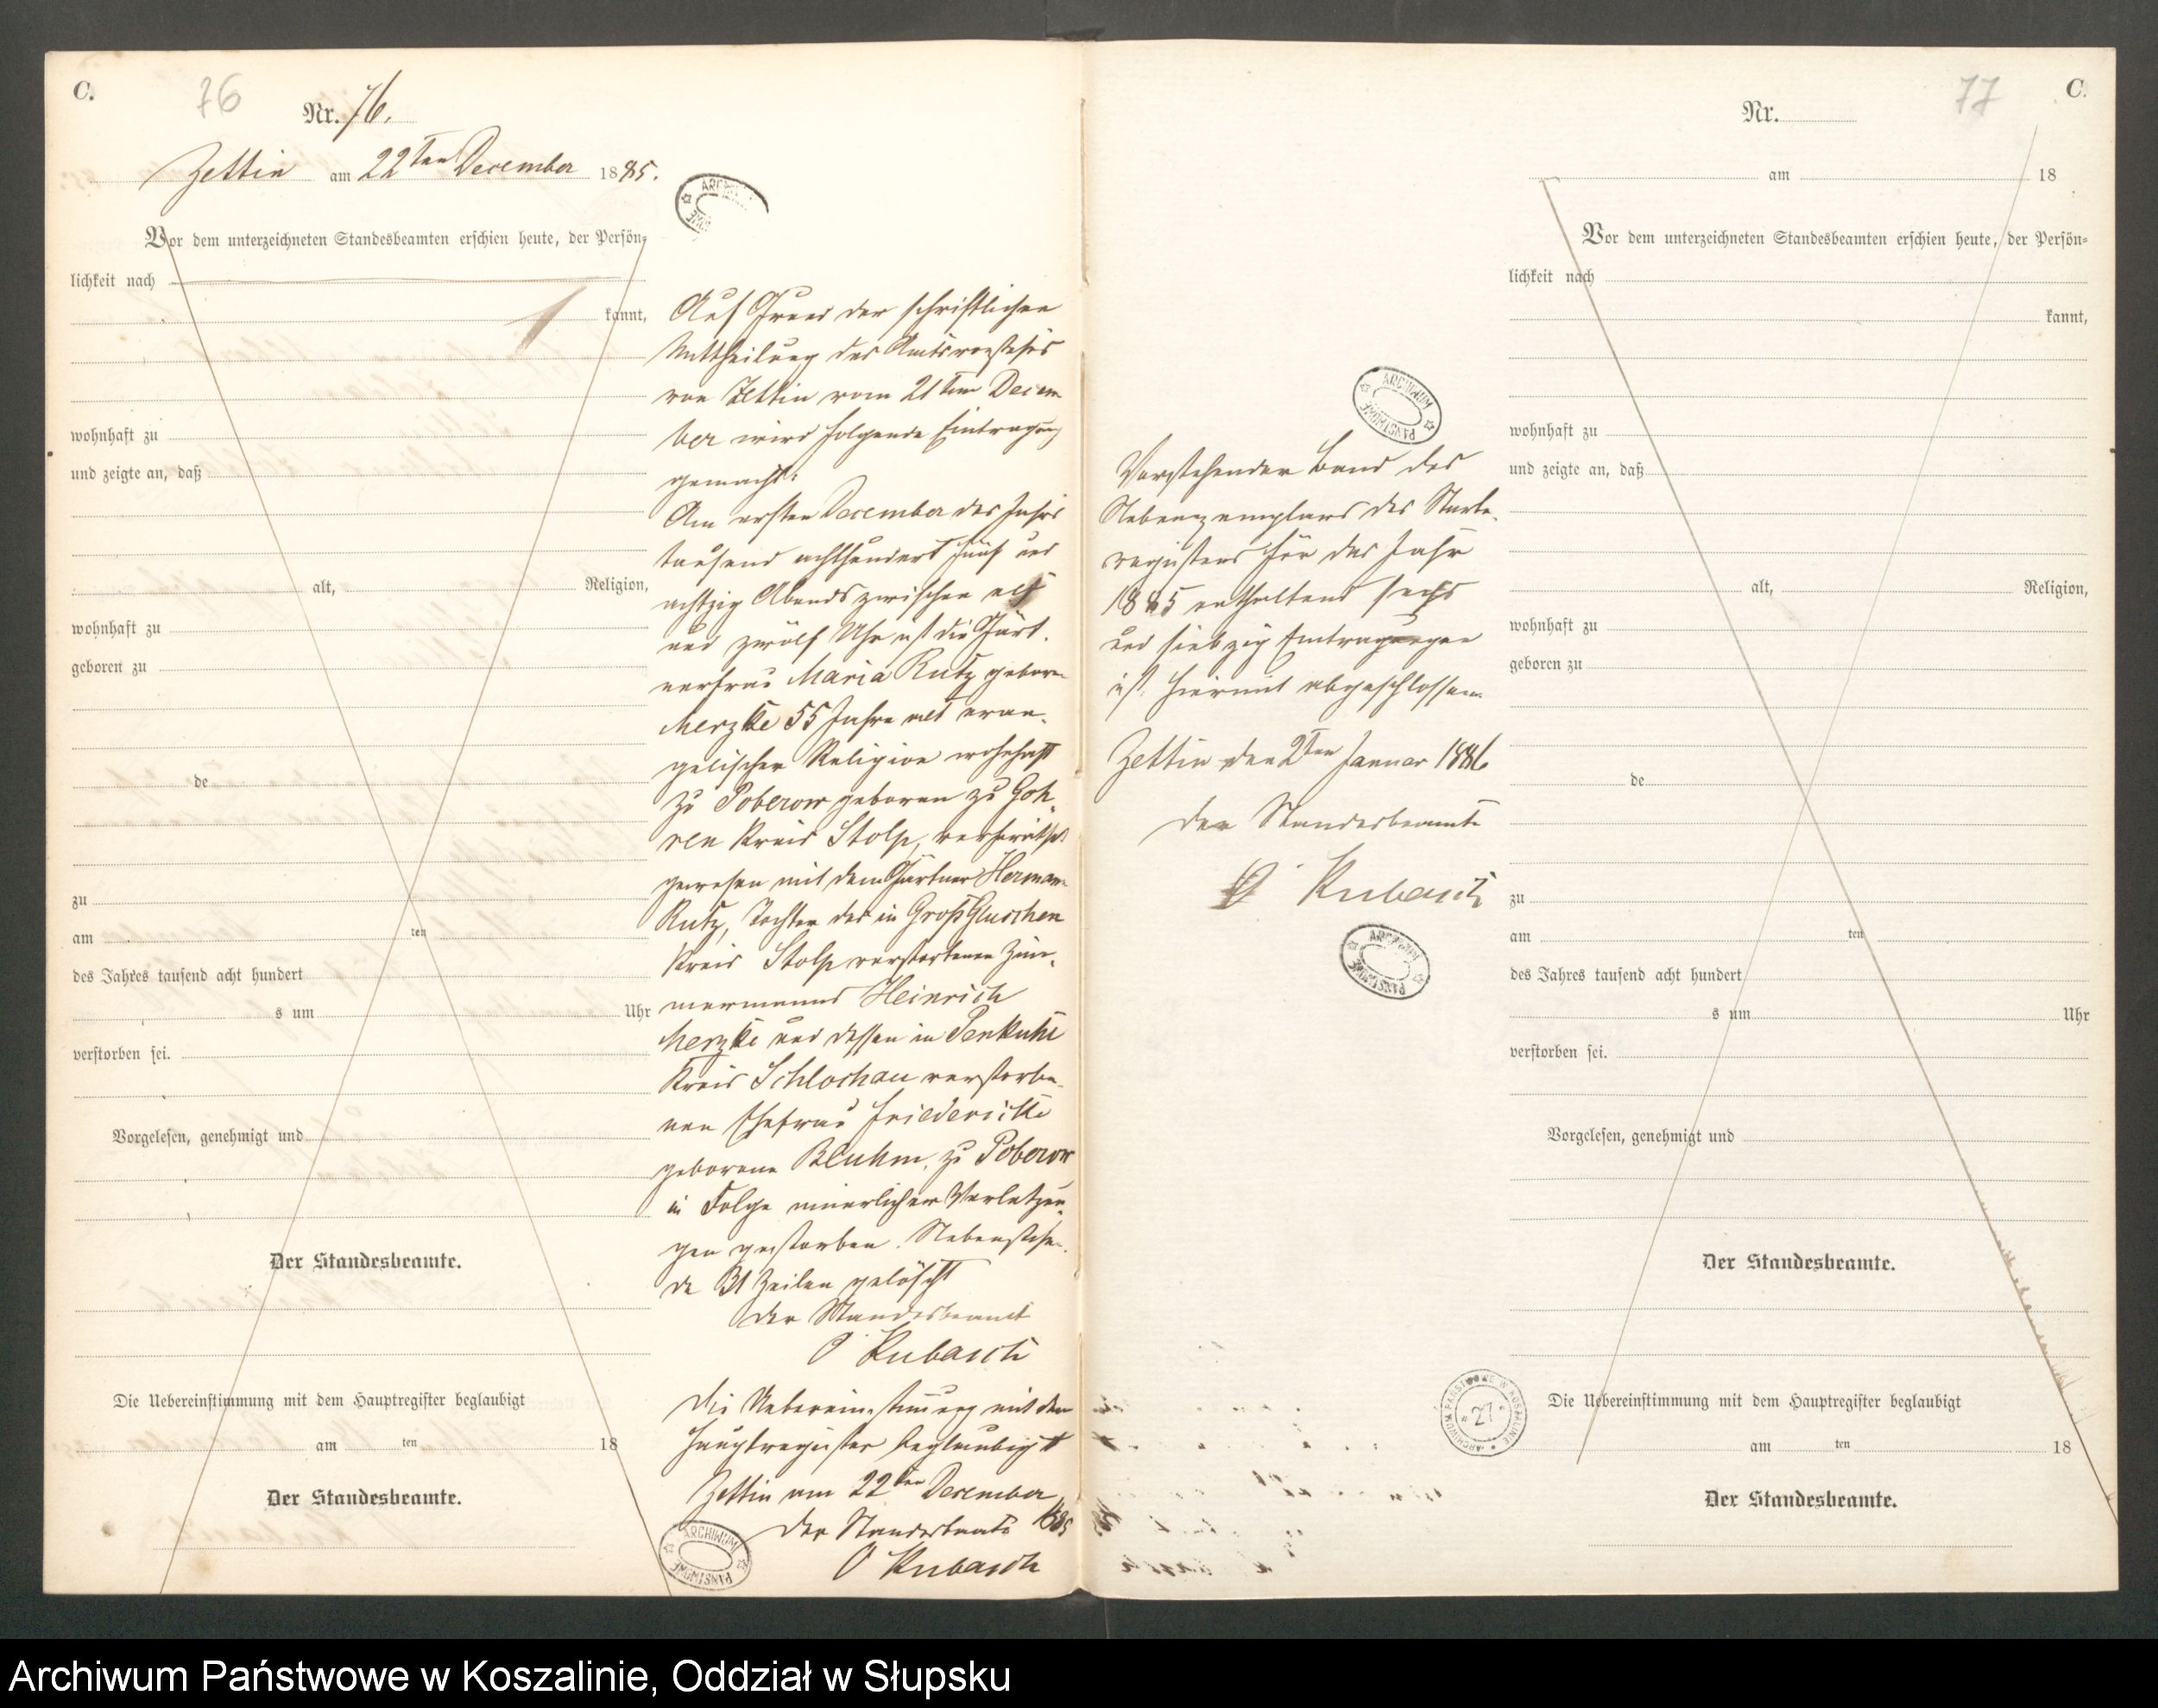 C.
76
Nr. 76.
Zettin am 22ten December 1885.
Vor dem unterzeichneten Standesbeamten erschien heute, der Persön-
lichkeit nach
kannt,
wohnhaft zu
und zeigte an, daß
alt, Religion,
wohnhaft zu
geboren zu
de
zu
am ten
des Jahres tausend acht hundert
s um Uhr
verstorben sei.
Vorgelesen, genehmigt und
Der Standesbeamte.
Die Uebereinstimmung mit dem Hauptregister beglaubigt
am ten 18
Der Standesbeamte.
Auf Grund der schriftlichen
Mittheilung des Amtsvorstehers
von Zettin vom 21ten Decem
ber wird folgende Eintragung
gemacht:
Am ersten December des Jahres
tausend achthundert fünf und
achtzig Abends zwischen elf
und zwölf Uhr ist die Gärt-
nerfrau Maria Rutz geboren
Merzke 55 Jahre alt evan-
gelischer Religion wohnhaft
zu Poberow geboren zu Goh-
ren Kreis Stolp, verheirathet
gewesen mit dem Gärtner Hermann
Rutz, Tochter des in Groß Gluschen
Kreis Stolp verstorbenen Zim-
mermanns Heinrich
Merzke und dessen in Penkuhl
Kreis Schlochau verstorbe-
nen Ehefrau Friedericke
geborene Bluhm, zu Poberow
in Folge innerlicher Verletzun-
gen gestorben. Nebenstehen-
de 31 Zeilen gelöscht
Der Standesbeamte
O Kubasch
Die Uebereinstimmung mit dem
Hauptregister beglaubigt
Zettin am 22ten December
Der Standesbeamte 1885
O Kubasch
ARCHIWUM PAŃSTWOWE
Vorstehender Band des
Nebenexemplars des Sterbe-
registers für das Jahr
1885 enthaltend sechs
und siebzig Eintragungen
ist hiermit abgeschlossen.
Zettin den 2ten Januar 1886
Der Standesbeamte
O Kubasch
ARCHIWUM PAŃSTWOWE
ARCHIWUM PAŃSTWOWE W KOSZALINIE
27
77
C.
Nr.
am 18
Vor dem unterzeichneten Standesbeamten erschien heute, der Persön-
lichkeit nach
kannt,
wohnhaft zu
und zeigte an, daß
alt, Religion,
wohnhaft zu
geboren zu
de
zu
am ten
des Jahres tausend acht hundert
s um Uhr
verstorben sei.
Vorgelesen, genehmigt und
Der Standesbeamte.
Die Uebereinstimmung mit dem Hauptregister beglaubigt
am ten 18
Der Standesbeamte.
Archiwum Państwowe w Koszalinie, Oddział w Słupsku